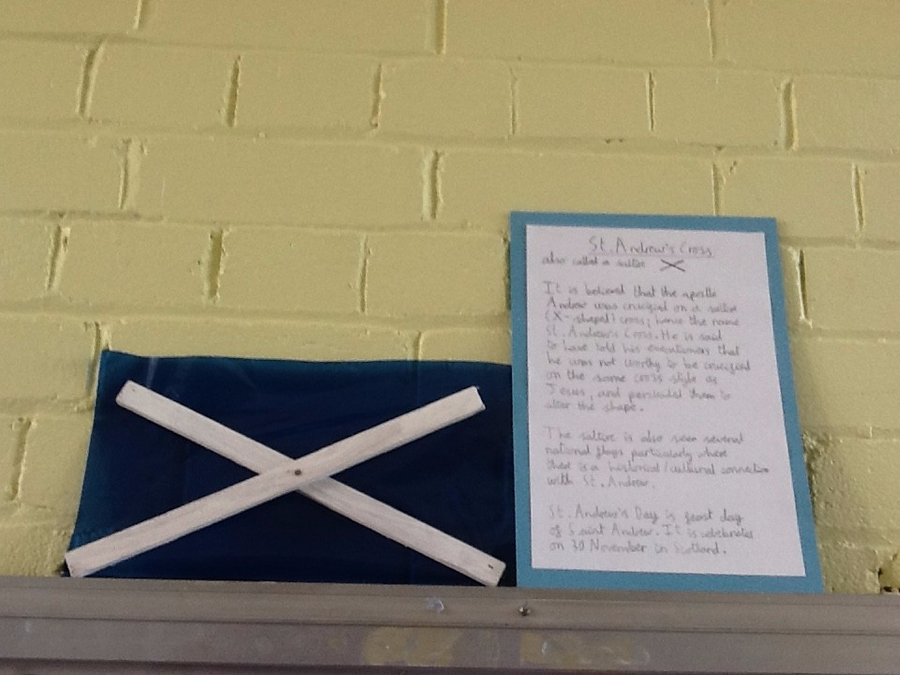 St. Andrew's Cross
also called a saltire
It is believed that the apostle
Andrew was crucified on a saltire
(X-shaped) cross; hence the name
St. Andrew's Cross. He is said
to have told his executioners that
he was not worthy to be crucified
on the same cross style as
Jesus, and persuaded them to
alter the shape.
The saltire is also seen several
national flags particularly where
there is a historical/cultural connection
with St. Andrew.
St. Andrew's Day is feast day
of Saint Andrew. It is celebrated
on 30 November in Scotland.